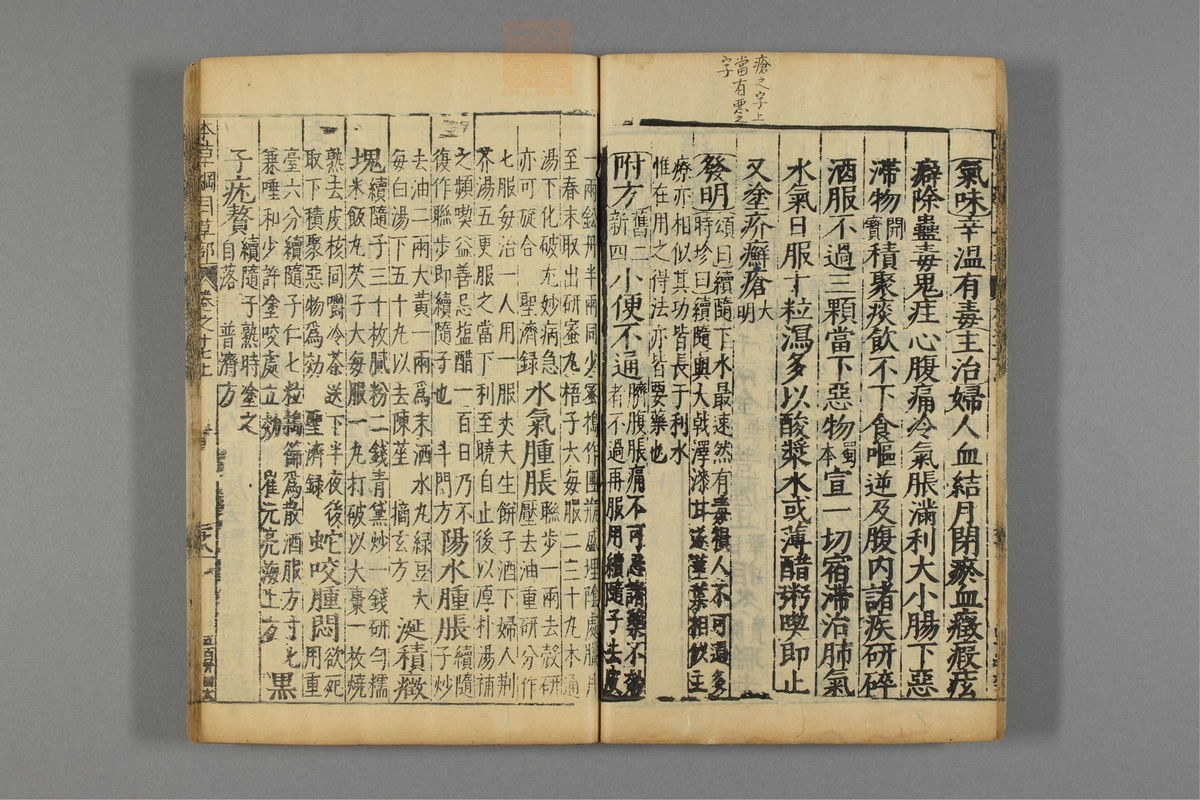 瘡之字上
當有惡之
字
氣味辛温有毒主治婦人血結月閉瘀血癥瘕痃
癖除蠱毒鬼疰心腹痛冷氣脹滿利大小腸下惡
滯物開寶積聚痰飲不下食嘔逆及腹内諸疾研碎
酒服不過三顆當下惡物蜀本宣一切宿滯治肺氣
水氣日服十粒瀉多以酸漿水或薄醋粥喫即止
又塗疥癬瘡大明
發明頌曰續隨下水最速然有毒損人不可過多
時珍曰續隨與大戟澤漆甘遂莖葉相似主
療亦相似其功皆長于利水
惟在用之得法亦皆要藥也
附方舊二新四小便不通臍腹脹痛不可忍諸藥不効
者不過再服用續隨子去皮
一兩鈆丹半兩同少蜜搗作團瓶盛埋陰處臘月
至春末取出研蜜丸梧子大每服二三十丸木通
湯下化破尤妙病急
亦可旋合 聖濟録水氣腫脹聯步一兩去殼研
壓去油重研分作
七服每治一人用一服丈夫生餅子酒下婦人荆
芥湯五更服之當下利至曉自止後以厚朴湯補
之頻喫益善忌塩醋一百日乃不
復作聯步即續隨子也 斗門方陽水腫脹續隨
子炒
去油二兩大黄一兩爲末酒水丸綠豆大
每白湯下五十丸以去陳莝 摘玄方涎積癥
塊續隨子三十枚膩粉二錢青黛炒一錢研勻糯
米飯丸芡子大每服一丸打破以大棗一枚燒
熟去皮核同嚼冷茶送下半夜後
取下積聚惡物爲効 聖濟録蛇咬腫悶欲死
用重
臺六分續隨子仁七粒搗篩爲散酒服方寸匕
兼唾和少許塗咬處立効 崔元亮海上方黑
子疣贅續隨子熟時塗之
自落 普濟方
本草綱目草部 卷之十七上